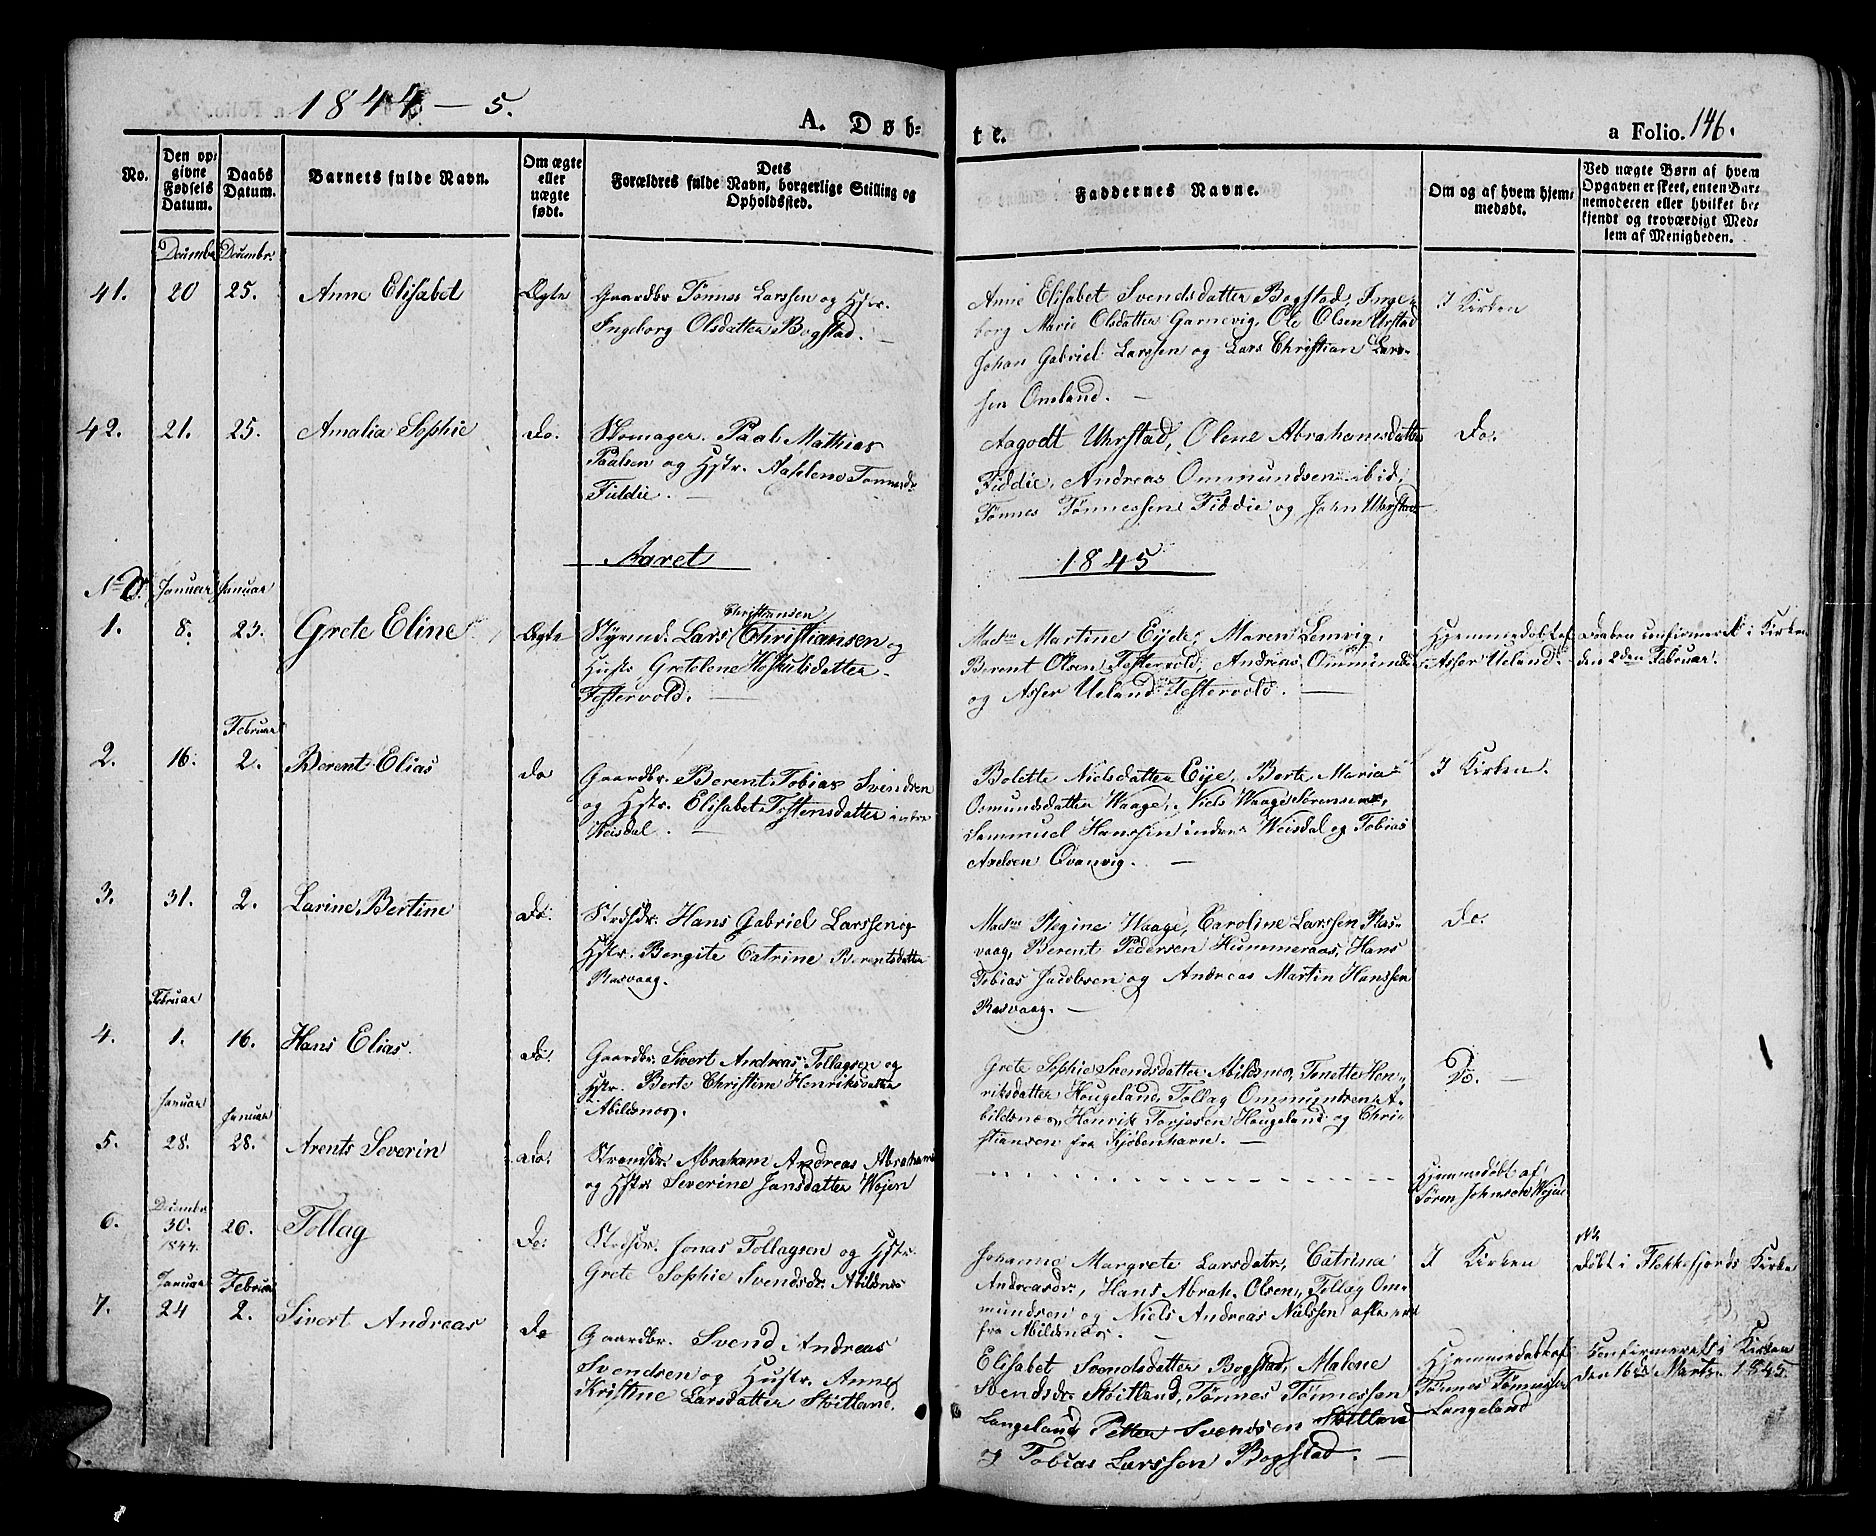 1844 - 5.
A. Døb-
te.
a Folio. 146.
No.
Den op-
givne
Fødsels
Datum.
Daabs
Datum.
Barnets fulde Navn.
Om ægte
eller
uægte
født.
Dets
Forældres fulde Navn, borgerlige Stilling og
Opholdssted.
Faddernes Navne.
Om og af hvem hjem-
medøbt.
Ved uægte Børn af hvem
Opgaven er skeet, enten Bar-
nemoderen eller hvilket be-
kjendt og troværdigt Med-
lem af Menigheden.
Decembr Decembr.
41. 20 25. Anne Elisabet Ægte
Gaardbr. Tønnes Larssen og Hstr.
Ingeborg Olsdatter Bogstad.
Anne Elisabet Svendsdatter Bogstad, Inge-
borg Marie Olsdatter Garnevig, Ole Olsen Urstad
Johan Gabriel Larssen og Lars Christian Lars-
sen Omland.
I Kirken
42. 21. 25. Amalia Sophie do.
Skomager Paal Mathias
Paalsen og Hstr. Aahlene Tønnesdr
Fiddie.
Aagodt Uhrstad, Olene Abrahamsdatter
Fiddie, Andreas Ommundsen ibid,
Tønnes Tønnessen Fiddie og John Uhrstad
do.
Aaret
1845
No. Januar Januar
1. 8. 23. Grete Eline Ægte
Christiansen
Styrmd. Lars Christiansen og
Hustr. Gretelene Hoskulsdatter
Festervold.
Madm Martine Eyde, Maren Lenvig,
Berent Olsen Festervold, Andreas Ommunds
og Asser Ueland Festervold.
Hjemmedøbt af
Asser Ueland.
Daaben confirmeret i Kirken
den 2den Februar.
Februar
2. 16. 2. Berent Elias do
Gaardbr. Berent Tobias Svendsen
og Hstr. Elisabet Tostensdatter indre
Weisdal.
Bolette Nielsdatter Eye, Berte Maria
Osmundsdatter Waage, Niels Waage Sørensen,
Sammuel Hanssen indre Weisdal og Tobias
Axelsen Qvanvig.
I Kirken.
3. 31. 2. Larine Bertine do.
Strdsdr. Hans Gabriel Larssen og
Hstr. Bergite Catrine Berentsdatter
Rasvaag.
Madm Regine Waage, Caroline Larssen Ras-
vaag, Berent Pedersen Hummeraas, Hans
Tobias Jacobsen og Andreas Martin Hanssen
Rasvaag.
do.
Februar
4. 1. 16. Hans Elias. do.
Gaardbr. Sivert Andreas Tollagsen og
Hstr. Berte Christine Henriksdatter
Abildsnes.
Grete Sophie Svendsdatter Abildsnes, Tonette Hen-
riksdatter Hougeland, Tollag Ommundsen A-
bildsnes, Henrik Torjesen Hougeland og Chri-
stiansen fra Kjøbenhavn.
Do.
Januar Januar
5. 28. 28. Arents Severin do.
Strandsdr. Abraham Andreas Abrahams
og Hstr. Severine Jansdatter Wojen
Hjemmedøbt af
Søren Johnsen Wojen
Decembr
6. 30. 26. Tollag Do.
1844.
Strdsdr. Jonas Tollagsen og Hstr.
Grete Sophie Svendsdr. Abildsnes
Johanne Margrete Larsdatr., Catrina
Andreasdr., Hans Abrah. Olsen, Tollag Om-
mundsen og Niels Andreas Nielssen
fra Abildsnes.
I Kirken
NB
døbt i Flekkefjords Kirke
Januar Februar
7. 24 2. Sivert Andreas Do
Gaardbr. Svend Andreas
Svendsen og Hustr. Anne
Kristine Larsdatter Skitland.
Elisabet Svendsdatter Bogstad, Malene
Svendsdr. Skitland, Tønnes Tønnessen
Langeland, Petter Svendsen Skitland
og Tobias Larssen Bogstad.
Hjemmedøbt af
Tønnes Tønnessen
Langeland
Confirmeret i Kirken
den 16de Marts 1845.